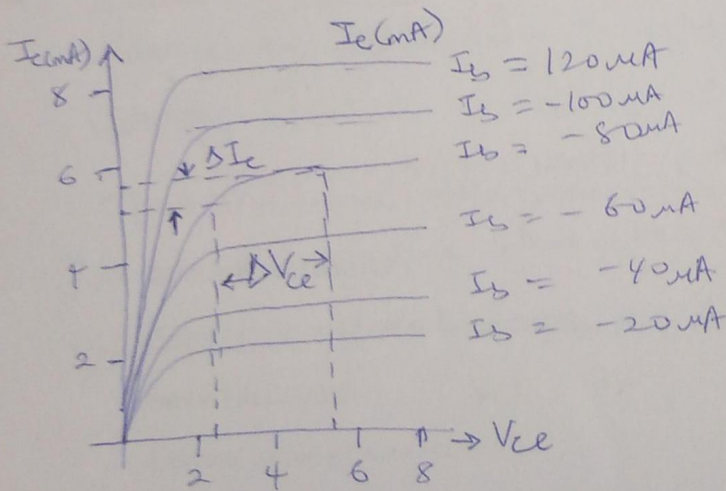 Ic(mA)
Ic(mA)
8
6
4
2
ΔIc
ΔVce
Ib = 120 μA
Ib = -100 μA
Ib = -80 μA
Ib = - 60 μA
Ib = -40 μA
Ib = -20 μA
2 4 6 8
Vce